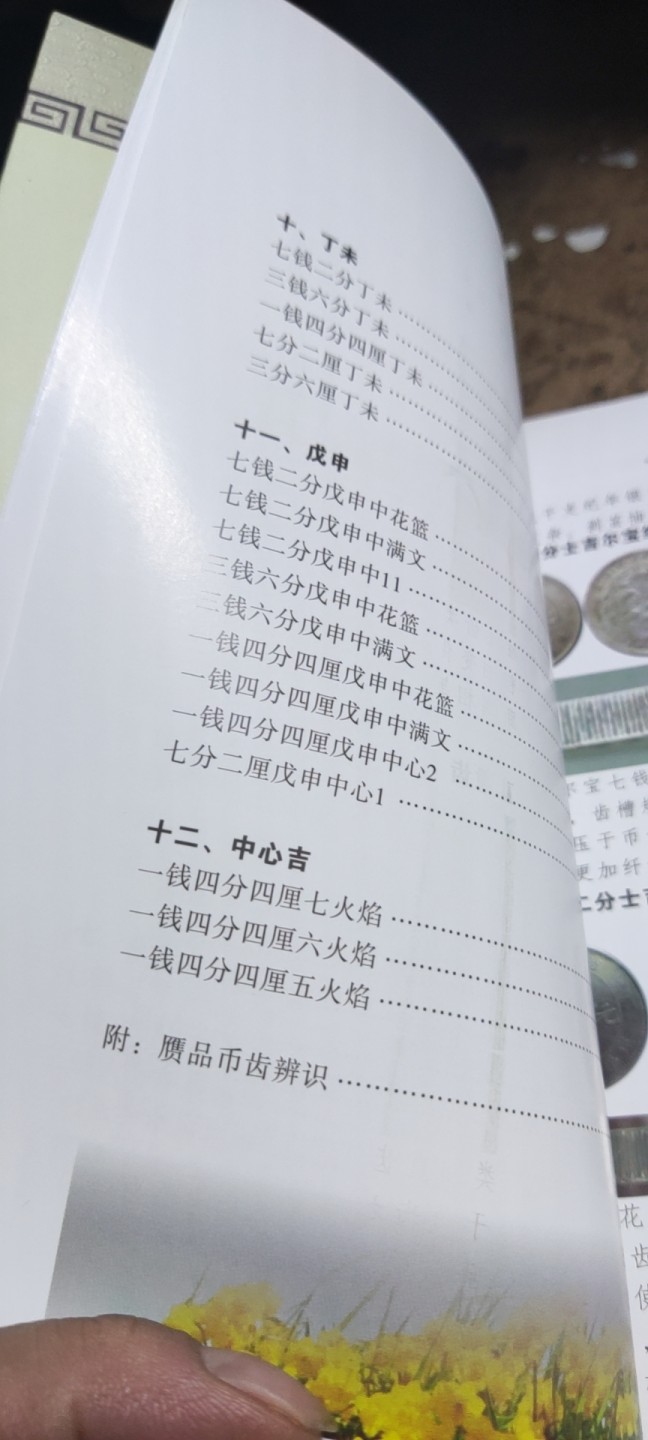 十、丁未
七钱二分丁未
三钱六分丁未
一钱四分四厘丁未
七分二厘丁未
三分六厘丁未
十一、戊申
七钱二分戊申中花篮
七钱二分戊申中满文
七钱二分戊申中11
三钱六分戊申中花篮
三钱六分戊申中满文
一钱四分四厘戊申中花篮
一钱四分四厘戊申中满文
一钱四分四厘戊申中心2
七分二厘戊申中心1
十二、中心吉
一钱四分四厘七火焰
一钱四分四厘六火焰
一钱四分四厘五火焰
附：赝品币齿辨识
分士吉尔宝
尔宝七钱
齿槽
压于币
更加纤
二分士吉
花
齿
使